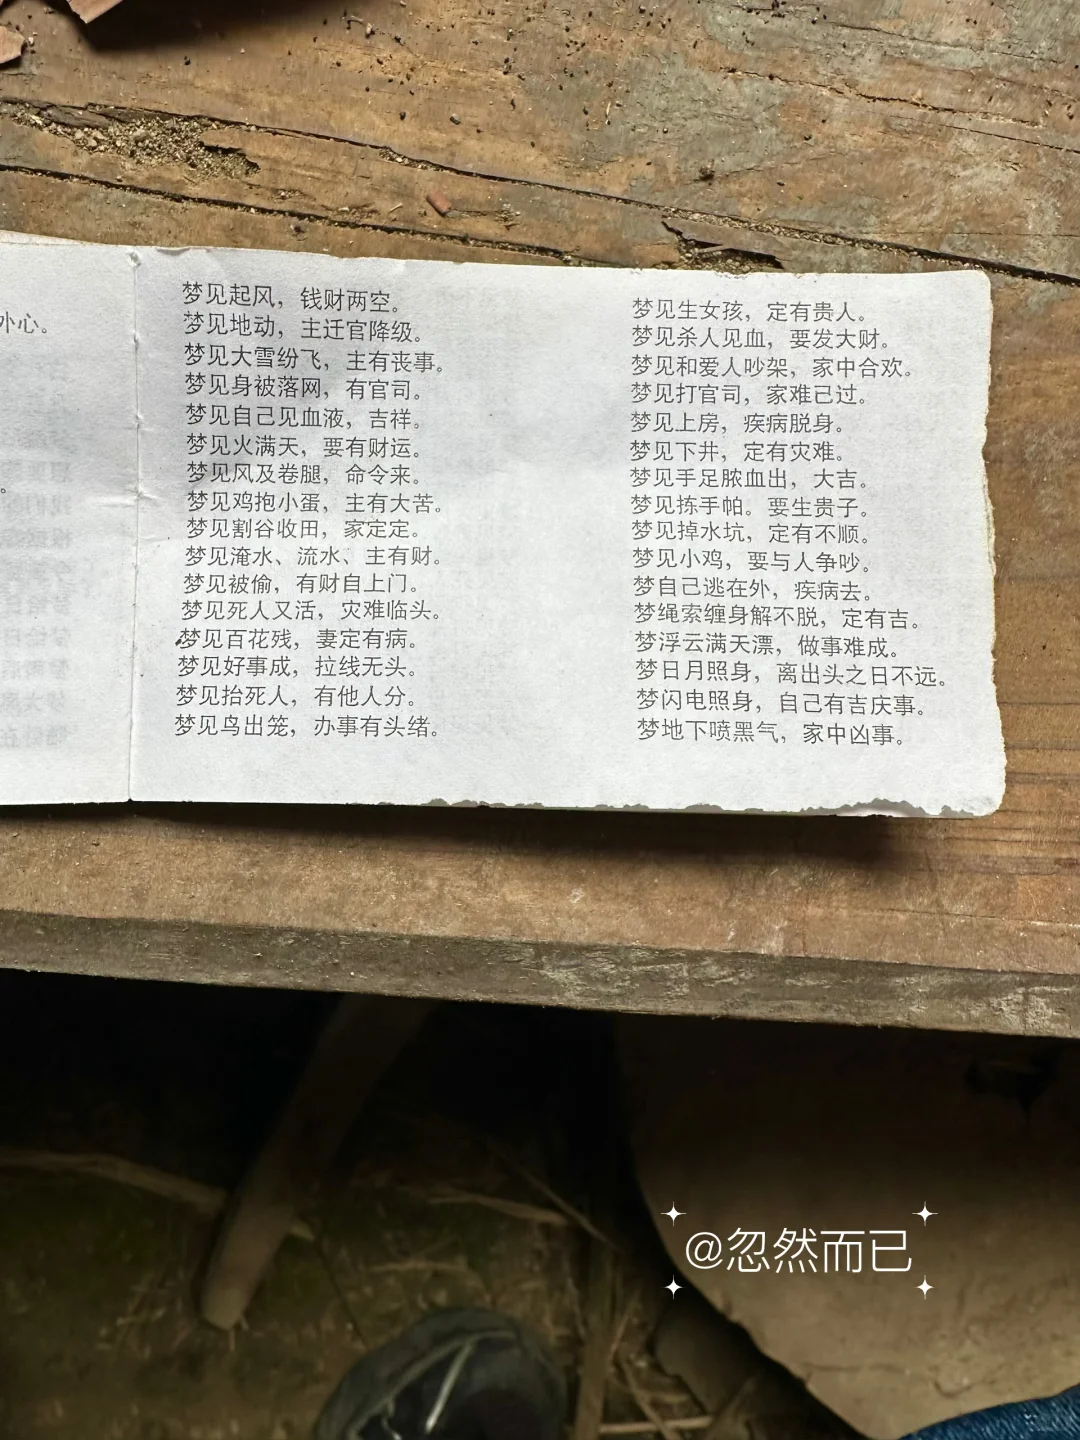 外心。
梦见起风，钱财两空。
梦见地动，主迁官降级。
梦见大雪纷飞，主有丧事。
梦见身被落网，有官司。
梦见自己见血液，吉祥。
梦见火满天，要有财运。
梦见风及卷腿，命令来。
梦见鸡抱小蛋，主有大苦。
梦见割谷收田，家定定。
梦见淹水、流水、主有财。
梦见被偷，有财自上门。
梦见死人又活，灾难临头。
梦见百花残，妻定有病。
梦见好事成，拉线无头。
梦见抬死人，有他人分。
梦见鸟出笼，办事有头绪。
梦见生女孩，定有贵人。
梦见杀人见血，要发大财。
梦见和爱人吵架，家中合欢。
梦见打官司，家难已过。
梦见上房，疾病脱身。
梦见下井，定有灾难。
梦见手足脓血出，大吉。
梦见拣手帕。要生贵子。
梦见掉水坑，定有不顺。
梦见小鸡，要与人争吵。
梦自己逃在外，疾病去。
梦绳索缠身解不脱，定有吉。
梦浮云满天漂，做事难成。
梦日月照身，离出头之日不远。
梦闪电照身，自己有吉庆事。
梦地下喷黑气，家中凶事。
@忽然而已